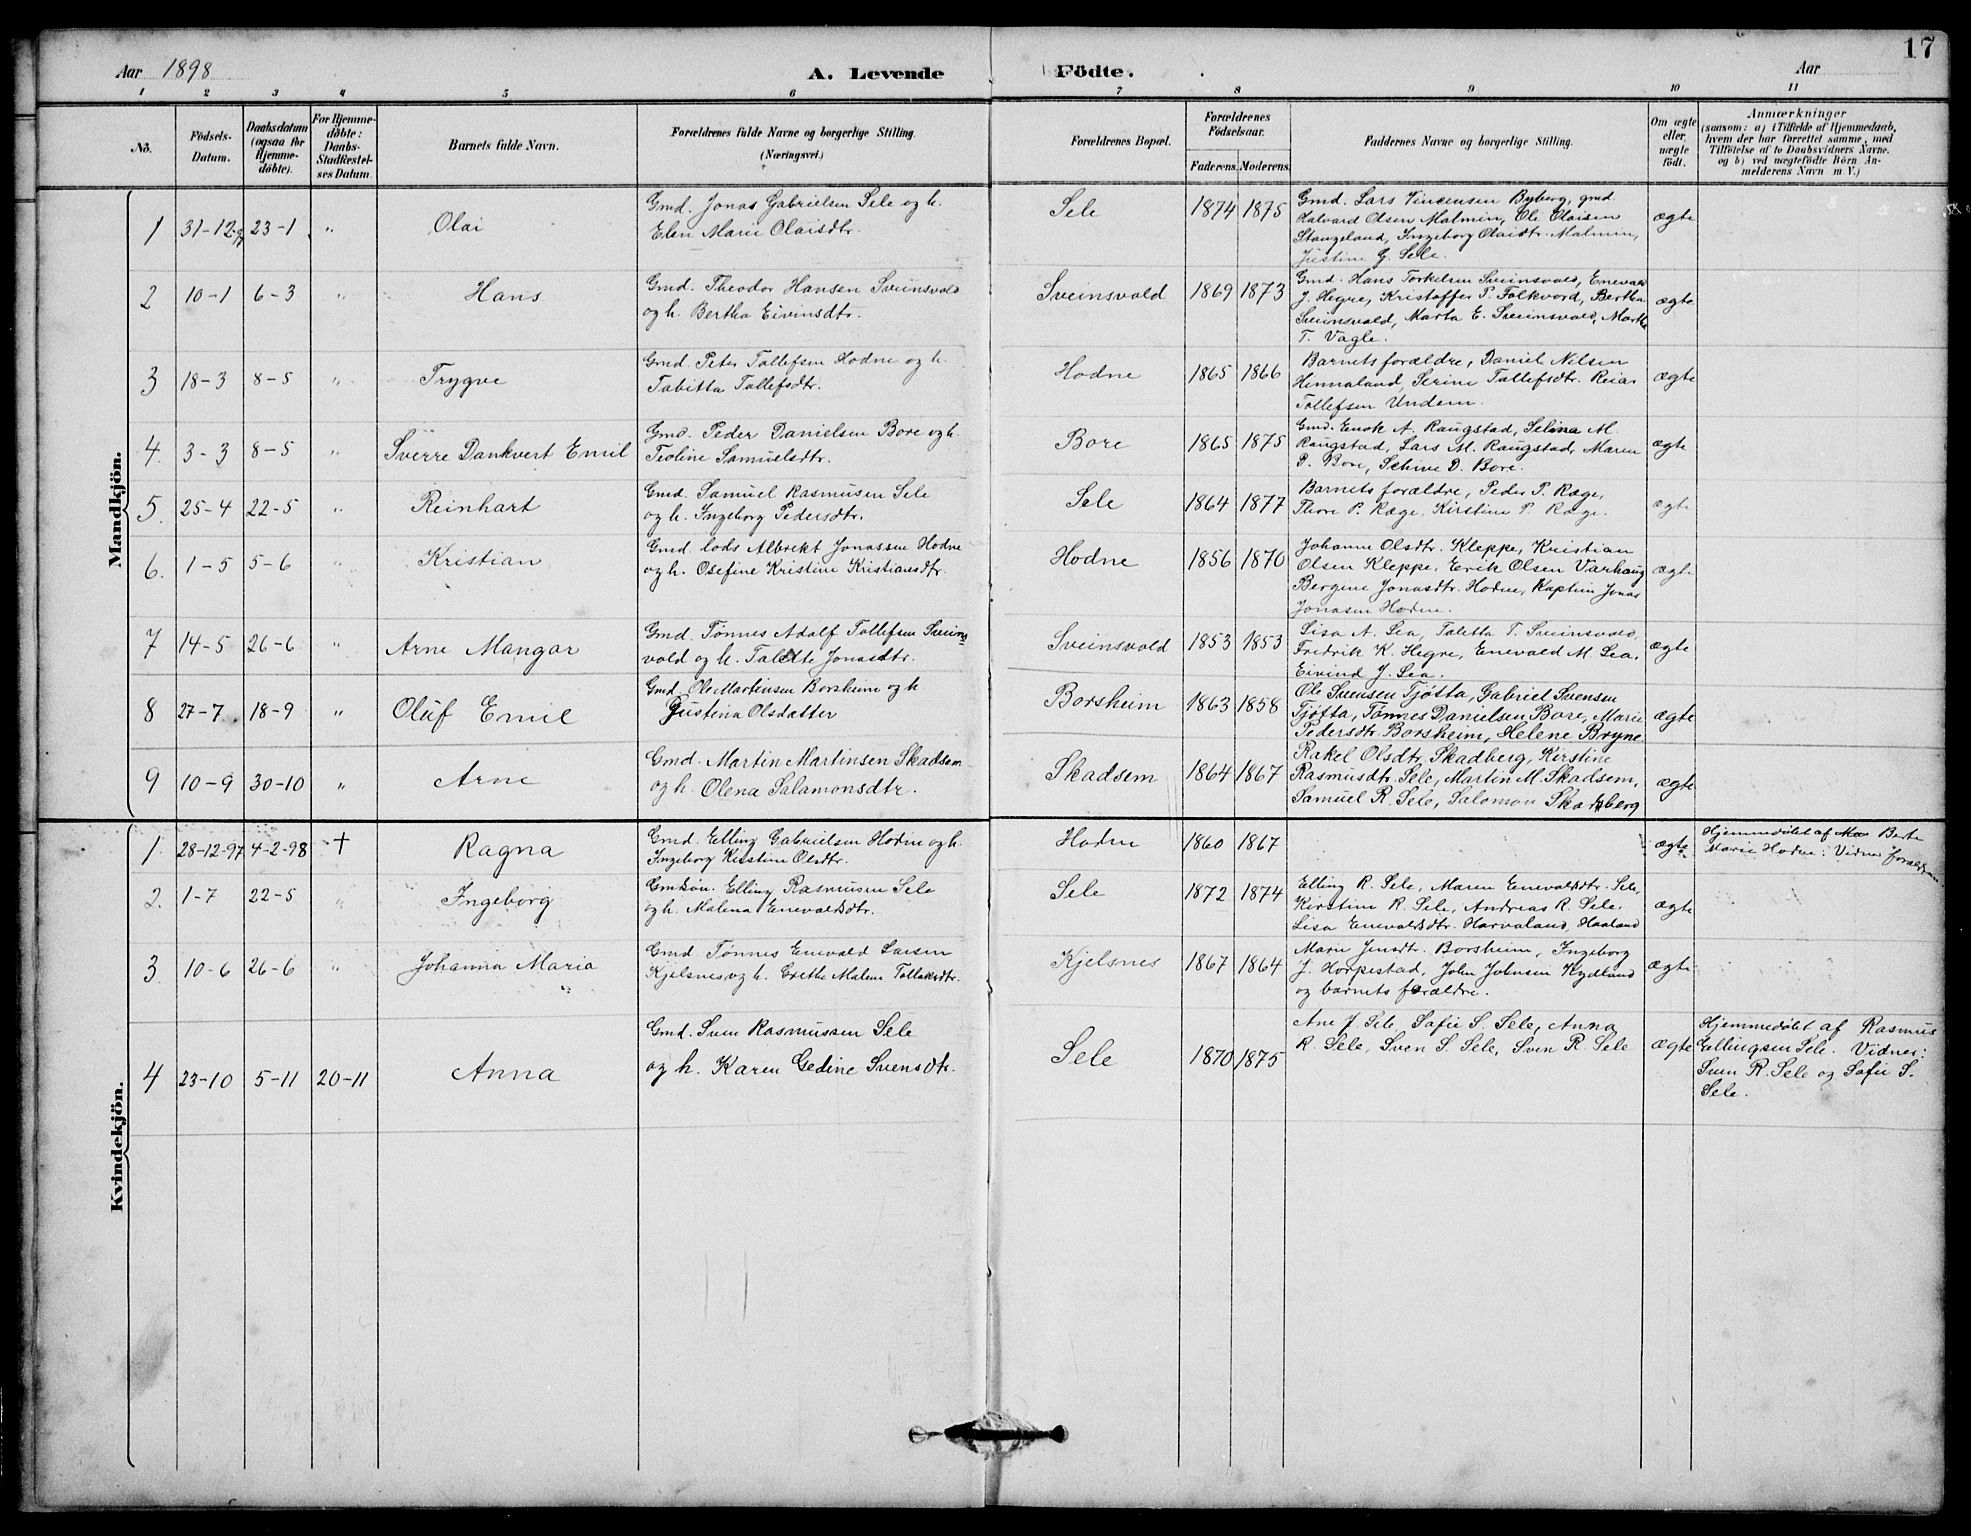 17
Aar 1898
A. Levende Födte.
Aar
1 2 3 4 5 6 7 8 9 10 11
No.
Födsels-
Datum.
Daabsdatum
(ogsaa for
Hjemme-
döbte).
For Hjemme-
döbte:
Daabs-
Stadfæstel-
ses Datum.
Barnets fulde Navn.
Forældrenes fulde Navne og borgerlige Stilling.
(Næringsvei.)
Forældrenes Bopæl.
Forældrenes
Födselsaar.
Faderens. Moderens.
Faddernes Navne og borgerlige Stilling.
Om ægte
eller
uægte
födt.
Anmærkninger
(saasom: a) i Tilfælde af Hjemmedaab,
hvem der har forrettet samme, med
Tilföielse af to Daabsvidners Navne,
og b) ved uægtefödte Börn An-
melderens Navn m. V.)
Mandkjön.
1 31-12-97 23-1 " Olai
Gmd. Jonas Gabrielsen Sele og h.
Elen Marie Olaisdtr.
Sele 1874 1875
Gmd. Lars Vincensen Byberg, gmd.
Halvard Olsen Malmin, Ole Olaisen
Stangeland, Ingeborg Olaisdtr. Malmin,
Justine G. Sele.
ægte
2 10-1 6-3 " Hans
Gmd. Theodor Hansen Sveinsvold
og h. Bertha Eivinsdtr.
Sveinsvold 1869 1873
Gmd. Hans Torkelsen Sveinsvold, Enevald
J. Hegre, Kristoffer P. Folkvord, Bertha
Sveinsvold, Marta E. Sveinsvold, Martha
T. Vagle.
ægte
3 18-3 8-5 " Trygve
Gmd. Peter Tollefsen Hodne og h.
Tabitta Tollefsdtr.
Hodne 1865 1866
Barnets forældre, Daniel Nilsen
Hennaland, Serine Tollefsdtr. Reiar
Tollefsen Undem.
ægte
4. 3-3 8-5 " Sverre Dankvert Emil
Gmd. Peder Danielsen Bore og h.
Teoline Samuelsdtr.
Bore 1865 1875
Gmd. Enok A. Raugstad, Selina M.
Raugstad, Lars M. Raugstad, Maren
D. Bore, Sehive D. Bore.
ægte
5. 25-4 22-5 " Reinhart
Gmd. Samuel Rasmusen Sele
og h. Ingeborg Pedersdtr.
Sele 1864 1877
Barnets forældre, Peder P. Ræge,
Thore P. Ræge, Kirstine P. Ræge.
ægte
6. 1-5 5-6 " Kristian
Gmd. lods Albrekt Jonassen Hodne
og h. Osefine Kristine Kristiansdtr.
Hodne 1856 1870
Johanne Olsdtr. Kleppe, Kristian
Olsen Kleppe, Erik Olsen Varhaug
Bergine Jonasdtr. Hodne, Kaptein Jonas
Jonasen Hodne.
ægte
7 14-5 26-6 " Arne Mangor
Gmd. Tönnes Adolf Tollefsen Sveins-
vold og h. Talette Jonasdtr.
Sveinsvold 1853 1853
Lisa A. Lea, Taletta T. Sveinsvold,
Fredrik K. Hegre, Enevald M. Lea,
Eivind J. Lea.
ægte
8 27-7 18-9 " Oluf Emil
Gmd. Ole Martinsen Borsheim og h
Justina Olsdatter
Borsheim 1863 1858
Ole Svensen Tjøtta, Gabriel Svensen
Tjøtta, Tönnes Danielsen Bore, Marie
Pedersdtr. Borsheim, Helene Bryne.
ægte
9 10-9 30-10 " Arne
Gmd. Martin Martinsen Skadsem
og h. Olena Salamonsdtr.
Skadsem 1864 1867
Rakel Olsdtr. Skadberg, Kirstine
Rasmusdtr. Sele, Martin M. Skadsem,
Samuel R. Sele, Salomon Skadberg
ægte
Kvindekjön.
1. 28-12-97 4-2-98 † Ragna
Gmd. Elling Gabrielsen Hodne og h.
Ingeborg Kirstine Olsdtr.
Hodne 1860 1867
ægte
Hjemmedøbt af Berte
Marie Hodne: Vidner forældrene.
2. 1-7 22-5 " Ingeborg
Gmdsøn. Elling Rasmusen Sele
og h. Malena Enevaldsdtr.
Sele 1872 1874
Elling R. Sele, Maren Enevaldsdtr. Sele,
Kirstine R. Sele, Andreas R. Sele.
Lisa Enevaldsdtr. Harvaland, Haaland
ægte
3. 10-6 26-6 " Johanna Maria
Gmd Tönnes Enevald Larsen
Kjelsnes og h. Grethe Malene Tollaksdtr.
Kjelsnes 1867 1864
Marie Jensdtr. Borsheim, Ingeborg
J. Horpestad, John Johnsen Kydland
og barnets forældre.
ægte
4 23-10 5-11 20-11 Anna
Gmd. Sven Rasmussen Sele
og h. Karen Gedine Svensdtr.
Sele 1870 1875
Ane J. Sele, Sofie S. Sele, Anna
R. Sele, Sven S. Sele, Sven R. Sele
ægte
Hjemmedøbt af Rasmus
Ellingsen Sele. Vidner:
Sven R. Sele og Sofie S.
Sele.